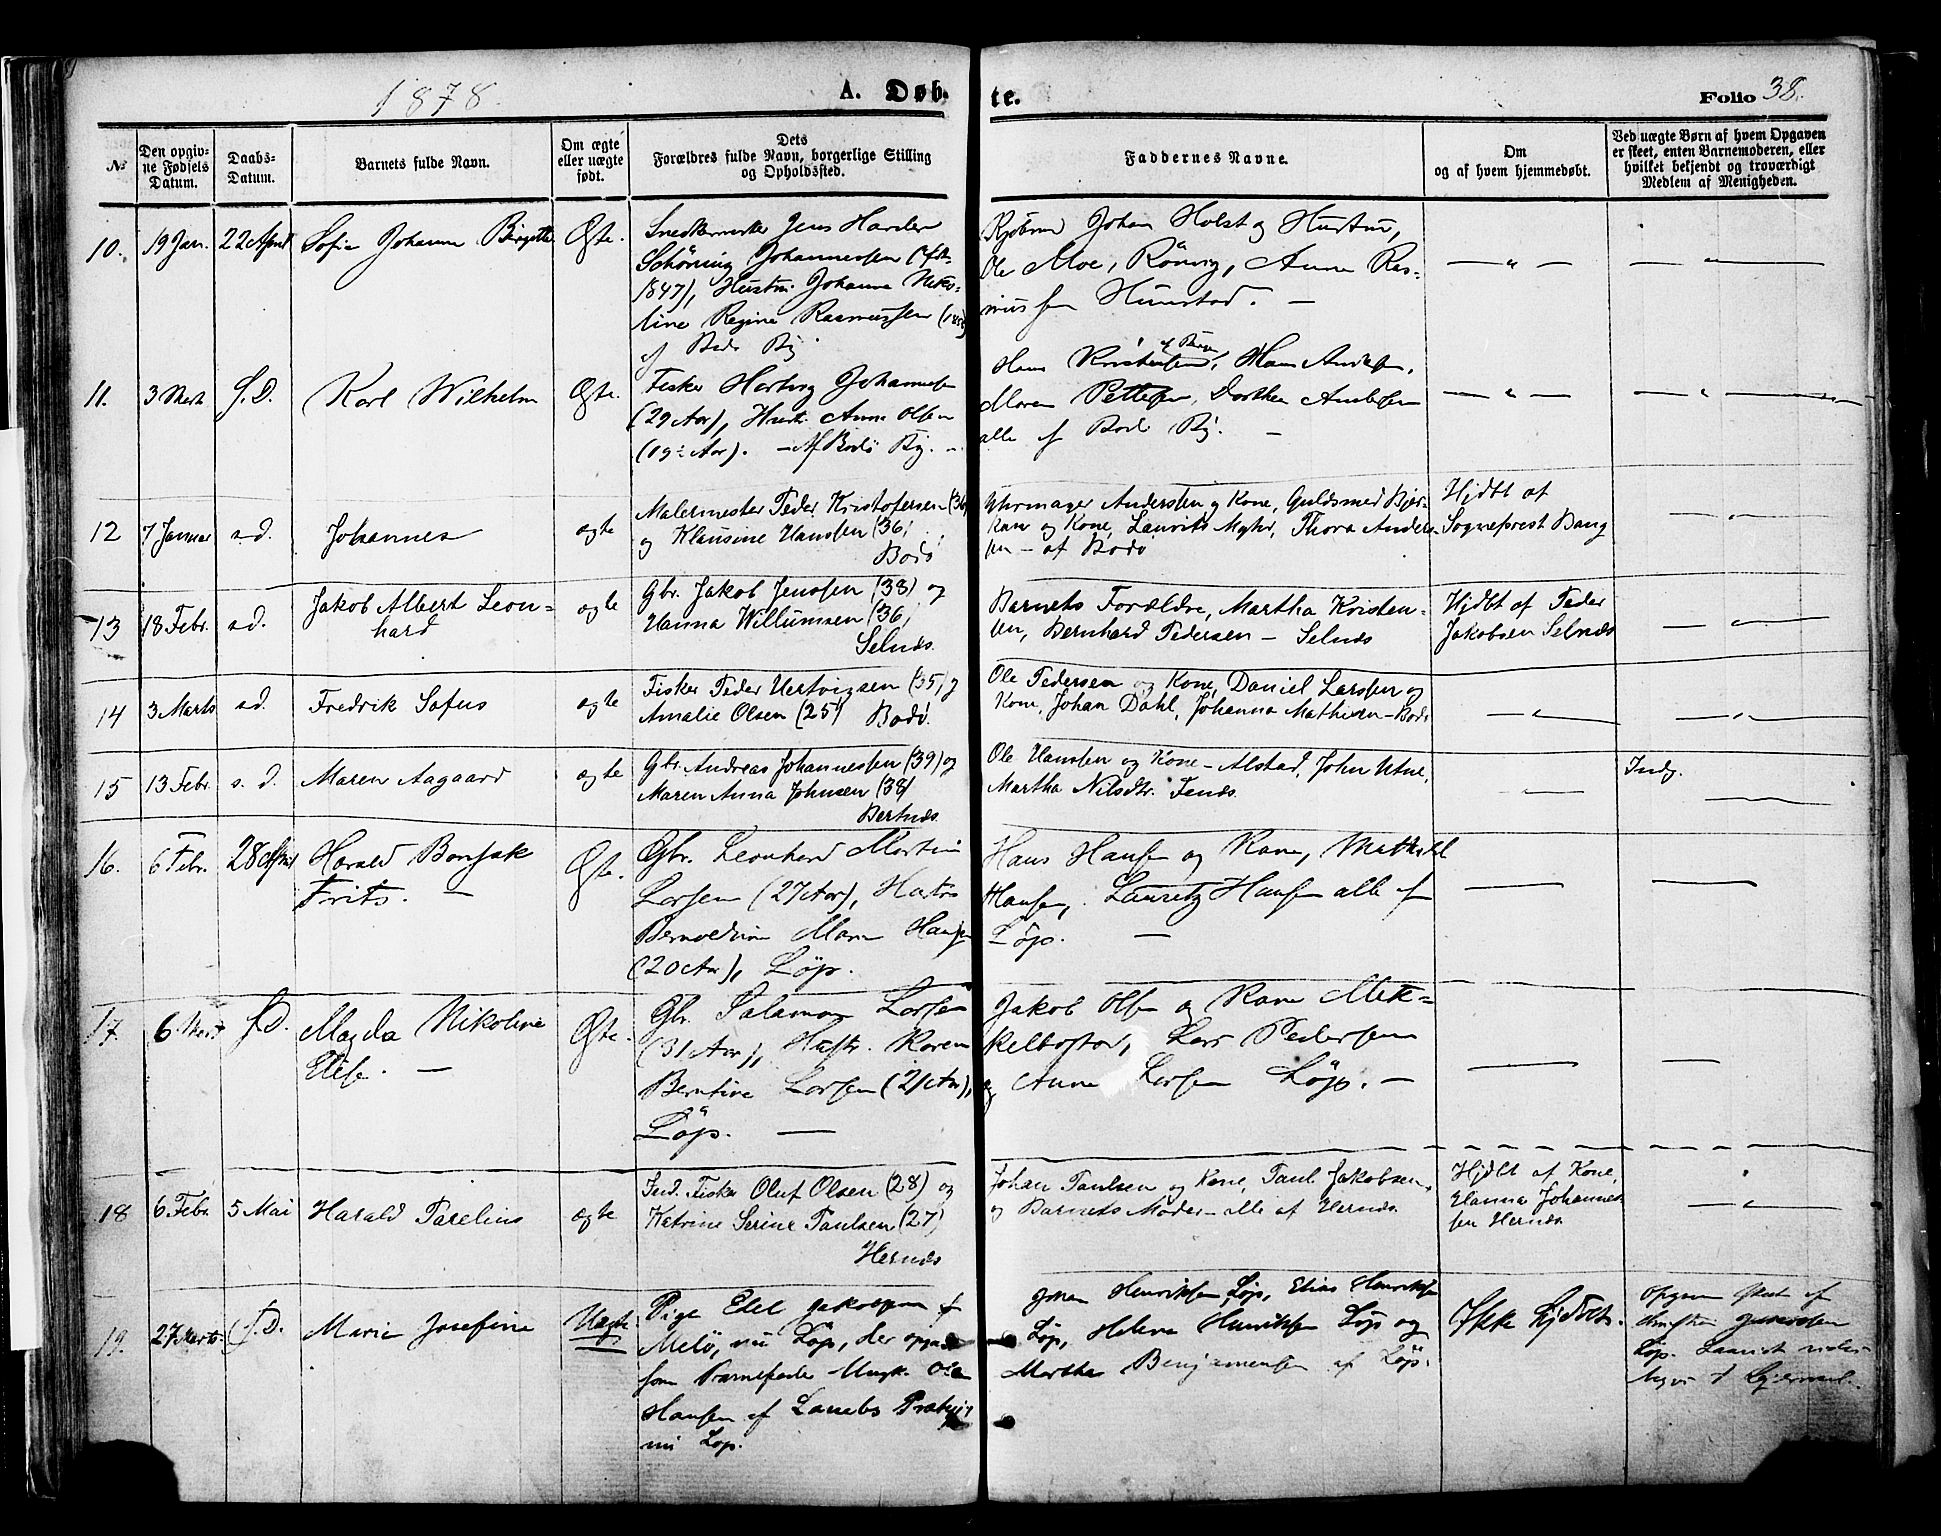 1878.
A. Døb-
te.
Folio 38.
No
Den opgiv-
ne Fødsels
Datum.
Daabs-
Datum.
Barnets fulde Navn.
Om ægte
eller uægte
født.
Dets
Forældres fulde Navn, borgerlige Stilling
og Opholdssted.
Faddernes Navne.
Om
og af hvem hjemmedøbt.
Ved uægte Børn af hvem Opgaven
er skeet, enten Barnemoderen, eller
hvilket bekjendt og troværdigt
Medlem af Menigheden.
10. 19 Jan. 22 April Sofie Johanne Birgitte Ægte.
Snedkermester Jens Harder
Schöning Johannessen (født
1847), Hustru Johanne Niko-
line Regine Rasmussen
af Bodø By.
Johan Holst og Hustru,
Ole Moe, Rönvig, Anne Ras-
mussen Hunstad. —
11. 3 Marts s.D. Karl Wilhelm Ægte.
Fisker Hartvig Johannesen
(29 Aar), Hustr. Anne Olsen
(19 Aar). — Af Bodö By. —
Hans Kristensen, Hans Andersen,
af Bergen
Maren Pettersen, Dorthea Andersen
alle af Bodö By. —
12 7 Januar s.d. Johannes ægte
Malermester Peder Kristofersen (36)
og Klausine Hanssen (36)
Bodö
Uhrmager Anderssen og Kone, Guldsmed Bjer-
kan og Kone, Laurits Myhr, Thora Anders-
sen — af Bodö
Hjdbt af
Sogneprest Bang
13 18 Febr. s.d. Jakob Albert Leon-
hard
ægte
Gbr. Jakob Jenssen (38) og
Hanna Willumsen (36)
Selnæs.
Barnets Forældre, Martha Kristen-
sen, Bernhard Pedersen — Selnæs
Hjdbt af Peder
Jakobsen Selnæs
14 3 Marts s.d. Fredrik Sofus ægte
Fisker Peder Hertvigsen (35) og
Amalie Olsen (25) Bodö.
Ole Pedersen og Kone, Daniel Larssen og
Kone, Johan Dahl, Johanna Mathisen — Bodö
15 13 Febr. s.d. Maren Aagaard ægte
Gbr. Andreas Johannessen (39) og
Maren Anna Johnsen (38)
Bertnæs.
Ole Hanssen og Kone — Alstad, John Utne,
Martha Nilsdtr. Fenæs.
Indg.
16. 6 Febr. 28 April Harald Bonsak
Frits. —
Ægte.
Gbr. Leonhard Martin
Larsen (27 Aar), Hustru
Maria Hansen
(20 Aar), Löp.
Hans Hansen og Kone, Mathild
Hansen, Lauretz Hansen alle af
Löp. —
17. 6 Marts s.D. Magda Nikoline
Elise. —
Ægte.
Gbr. Salamon Larsen
(31 Aar), Hustr. Karen
Berntine Larsen (21 Aar),
Löp. —
Jakob Olsen og Kone Mek-
kelbostad, Lars Pedersen
og Anne Larsen Löp. —
18 6 Febr. 5 Mai Harald Parelius ægte
Ind. Fisker Oluf Olsen (28) og
Katrine Serine Paulsen (27)
Hernæs
Johan Paulsen og Kone, Paul Jakobsen
og Barnets Moder — alle af Hernæs.
Hjdbt af Kone,
Hanna Johannes-
sen Hernæs
19. 27 Marts s.D. Marie Josefine Uægte.
Pige Elel Jakobsen af
Melö, nu Löp, der opgav
som Barnefader Ungk. Ole
Hansen af
nu Löp.
Johan Henriksen Löp, Elias Henriksen
Löp, Helene Henriksen Löp og
Martha Benjaminsen af Löp.
Ikke hjdbt.
Opgaven skeet af
Löp.